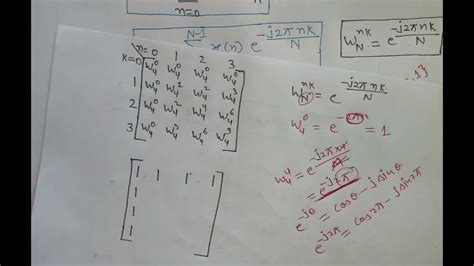 n=0
N-1
x(n) e^{-j2πnk/N}
W_N^{nk} = e^{-j2πnk/N}
n=0 1 2 3
k=0 W_4^0 W_4^0 W_4^0 W_4^0
1 W_4^0 W_4^1 W_4^2 W_4^3
2 W_4^0 W_4^2 W_4^4 W_4^6
3 W_4^0 W_4^3 W_4^6 W_4^9
W_N^{nk} = e^{-j2πnk/N}
W_4^0 = e = 1
W_4^4 = e^{-j2π}
= e^{-j2π}
e^{-jθ} = cosθ - jsinθ
e^{-j2π} = cos2π - jsin2π
1 1 1 1
1
1
1